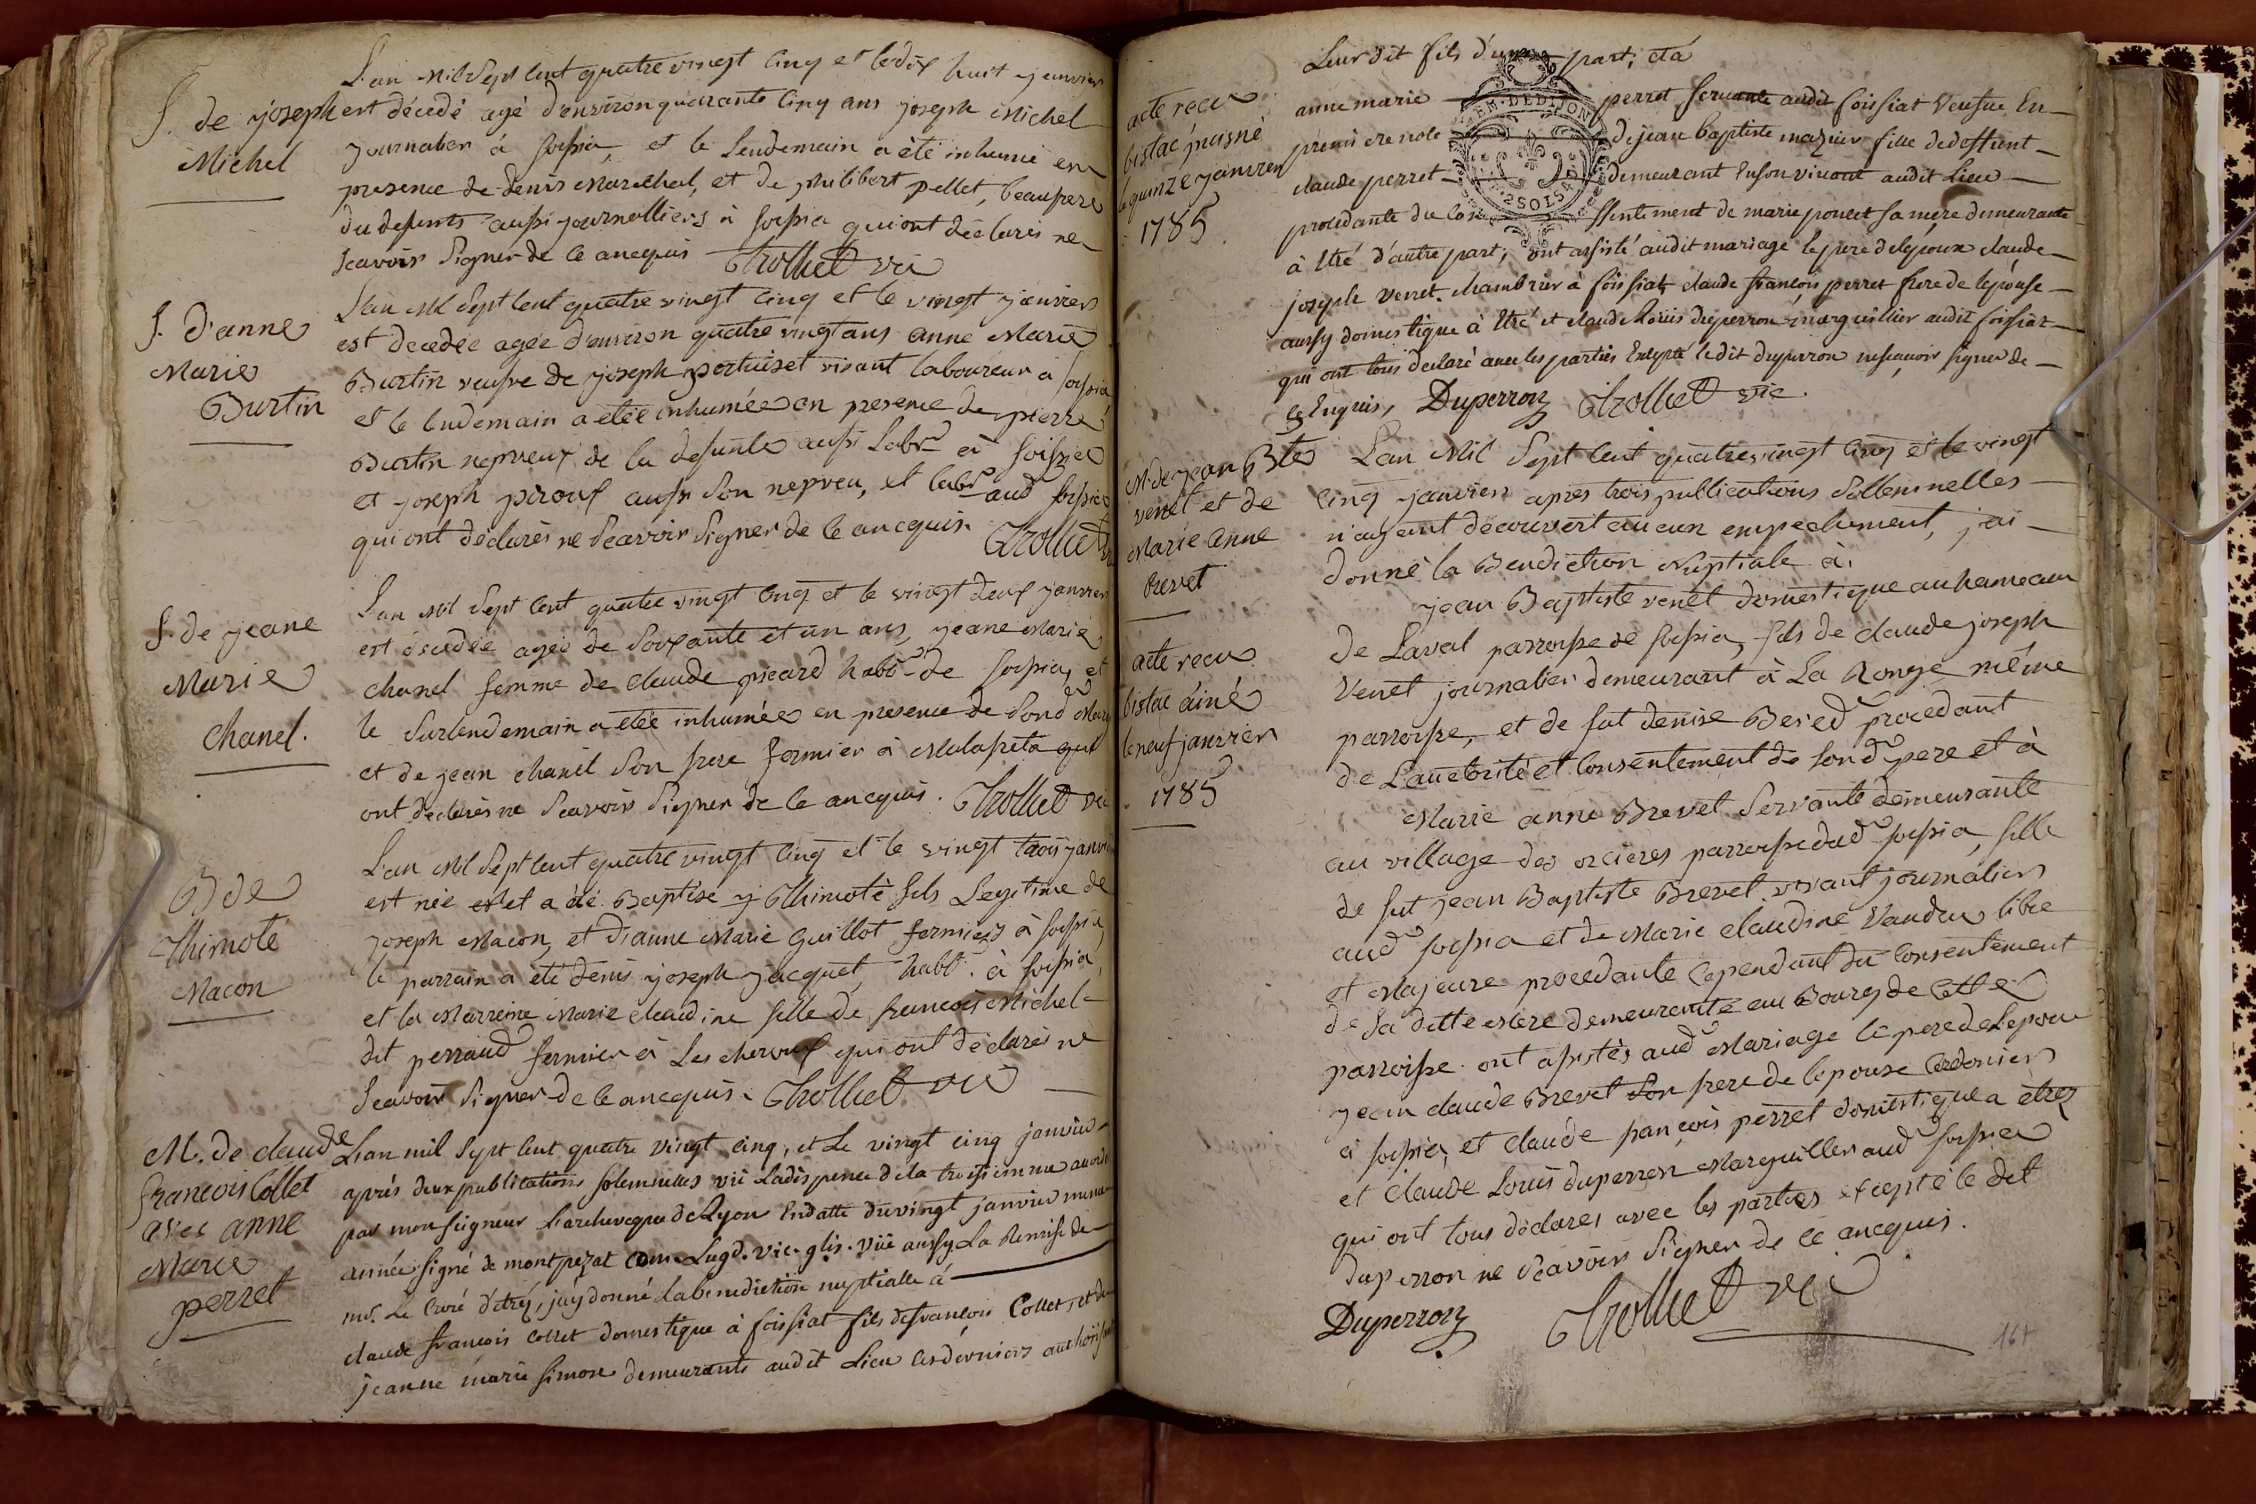 L'an Mil Sept Cent quatre vingt cinq et le dix huit janvier
S. de joseph
Michel
est décédé agé d'environ quarante cinq ans joseph Michel
journalier à foissia, et le Lendemain a été inhumé en
presence de denis Marechal, et de philibert pellet, beaupere
du defunts aussi journalliers à foissia qui ont déclarés ne
scavoir signer de ce ancquis Chollet vic
S. d'anne
Marie
Burtin
L'an Mil Sept Cent quatre vingt cinq et le vingt janvier
est décedée agée d'environ quatre vingt ans anne Marie
Burtin veufve de joseph pertuiset vivant laboureur à foissia
et le lendemain a etée inhumée en presence de pierre
Burtin nepveux de la defunte aussi Labr à foissia
et joseph piroux aussi son nepveu, et labr aud foissia
qui ont déclarés ne scavoir signer de ce ancquis. Chollet
S. de jeane
Marie
Chanel.
L'an Mil Sept Cent quatre vingt cinq et le vingt deux janvier
est décedée agée de soixante et un ans, jeane Marie
chanel femme de claude picard habt de foissia, et
le surlendemain a etée inhumée en presence de sond Mary
et de jean chanel son frere fermier à Malafreta qui
ont déclarés ne scavoir signer de ce ancquis. Chollet vic
B de
Thimoté
Macon
L'an Mil Sept Cent quatre vingt cinq et le vingt trois janvier
est née et a été Baptisé Thimoté fils Legitime de
joseph Macon, et d'anne Marie Guillot fermiers à foissia
le parrain a été denis joseph jacquet, habt. à foissia
et la Marreine Marie claudine fille de francois Michel
dit perraud fermier à Les cheroux qui ont déclarés ne
scavoir signer de ce ancquis. Chollet vic
M. de claude
francois Collet
avec anne
Marie
perret
L'an mil sept cent quatre vingt cinq, et Le vingt cinq janvier
après deux publications solemnelles vü La dispence de la troisiemme accordé
par monseigneur L'archeveque de Lyon En datte du vingt janvier meme
année signé de montpezat Com. Lugd. vic. glis. vüe aussy La Remise de
mr. Le Curé d'etré, j'ay donné La benediction nuptialle à
claude françois Collet domestique à foissiat fils de françois Collet, et de
jeanne marie simon demeurants audit Lieu ces derniers authorisant
Leur dit fils d'une part; et à
acte recu
bistac puisné
le quinze janvier
1785
anne marie perret servante audit foissiat veufve En
premiere nole de jean baptiste mazuier fille de deffunt
claude perret demeurant En son vivant audit Lieu
procedante du consentiment de marie poncet sa mere demeurante
à Etré d'autre part; ont assisté audit mariage le pere de l'epoux claude
joseph venet chambrier à foissiat, claude francois perret frere de l'epouse
aussy domestique à Etré et claude Loüis duperron marguillier audit foissiat
qui ont tous declaré avec les parties Excepté ledit duperron ne scavoir signer de
ce Enquis, Duperron Chollet vic.
M. de jean Bte
venet et de
Marie anne
Brevet
acte recu
bistac ainé
le neuf janvier
1785
L'an Mil Sept Cent quatre vingt cinq et le vingt
cinq janvier apres trois publications sollemnelles
n'ayant découvert aucun empechement, j'ai
donné la Benediction Nuptiale à.
jean Baptiste venet domestique au hameau
de Laval parroisse de foissia, fils de claude joseph
Venet journalier demeurant à La Ronge même
parroisse, et de fut denise Bered procedant
de L'auctorité et consentement de sond pere et à
Marie anne Brevet servante demeurante
au village des orcieres parroisse dud foissia, fille
de fut jean Baptiste Brevet vivant journalier
aud foissia et de Marie claudine Vandru libre
et Majeure procedante cependant du consentement
de sa ditte Mere demeurante au Bourg de Cette
parroisse. ont assistés aud Mariage le pere de Lepoux
jean claude Brevet son frere de lepouse Cordonier
à foissia, et claude françois perret domestique a etrez
et claude Louis duperron Marguiller aud foissia
qui ont tous déclarés avec les parties excepté le dit
duperron ne scavoir signer de ce ancquis.
Duperron Chollet vic
161